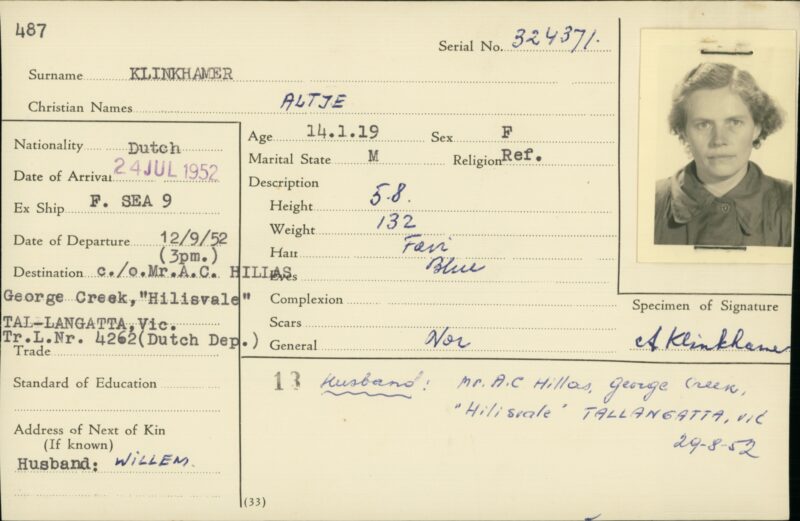 487
Serial No. 324371.
Surname KLINKHAMER
Christian Names ALTJE
Nationality Dutch
Date of Arrival 24 JUL 1952
Ex Ship F. SEA 9
Date of Departure 12/9/52
(3pm.)
Destination c./o.Mr.A.C. HILLAS
George Creek,"Hilisvale"
TAL-LANGATTA,Vic.
Tr.L.Nr. 4262(Dutch Dep.)
Trade
Standard of Education
Address of Next of Kin
(If known)
Husband: WILLEM.
Age 14.1.19 Sex F
Marital State M Religion Ref.
Description
Height 5.8.
Weight 132
Hair Fair
Eyes Blue
Complexion
Scars
General Nor
Specimen of Signature
A Klinkhamer
13 Husband: Mr. A.C Hillas, George Creek,
"Hilisvale" TALLANGATTA, Vic
29-8-52
(33)